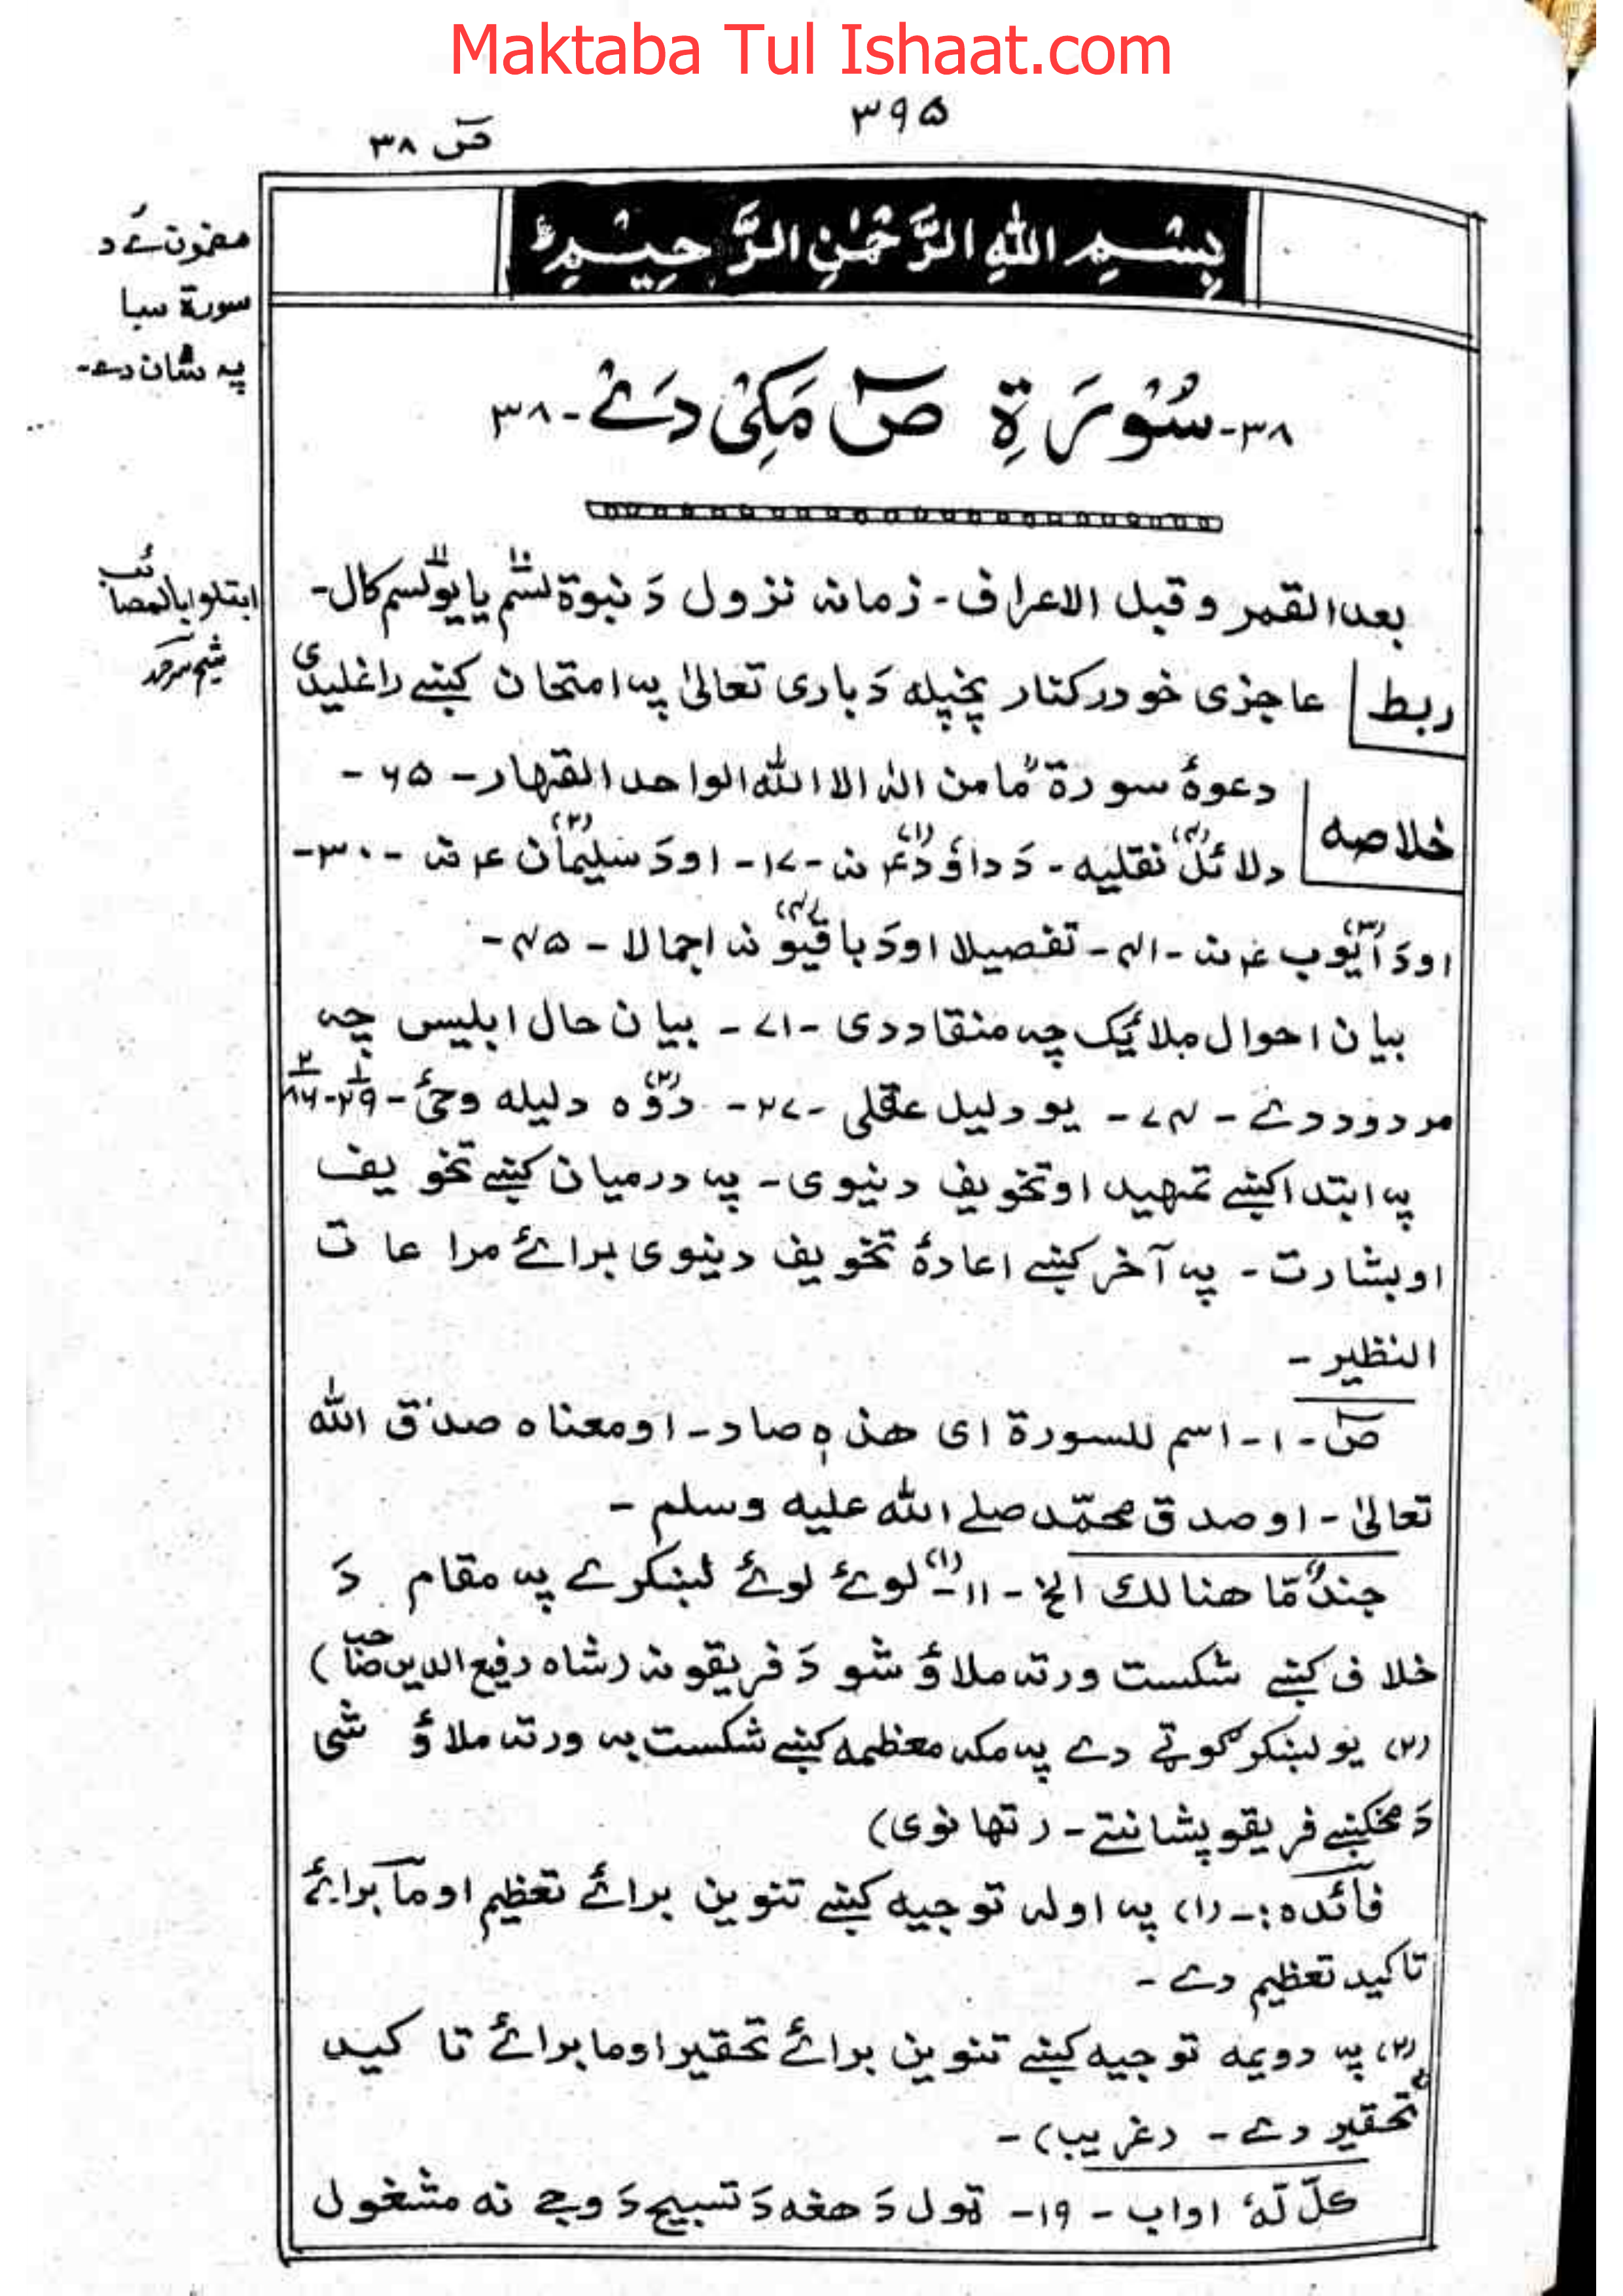 Maktaba Tul Ishaat.com
۳۹۵
صٓ ۳۸
مضمون ئے د
سورة سبا
پہ شان دے۔
بِسْمِ اللهِ الرَّحْمٰنِ الرَّحِيْمِ
۳۸۔ سُوْرَةِ صٓ مَكِّیْ دَےْ۔ ۳۸
ابتلوا بالمصائب
بعد القمر وقبل الاعراف۔ زمانہ نزول دَ نبوة لسّم یا یوّلسم کال۔
۱۰ ۱۱
ربط عاجزی خو درکنار پخپله دَ باری تعالیٰ پہ امتحان کښے راغلیدی
خلاصه دعوۀ سورة مّامن الٰہ الا الله الواحد القهار۔ ۶۵۔
دلائل (۴) نقلیه۔ دَ داؤد (۱) ؑ نہ ۔۱۷۔ اودَ سلیمان (۲) ؑ نہ ۔۳۰۔
اودَ ایّوب (۳) ؑ نہ ۔۴۱۔ تفصیلا اودَ باقیو (۴) نہ اجمالا ۔۴۵۔
بیان احوال ملائیک چہ منقاد دی ۔۷۱۔ بیان حال ابلیس چہ
مردود دے ۔۷۴۔ یو دلیل عقلی ۔۲۷۔ دوّه (۲) دلیله وحئ ۔۲۹۔ ۸۶
پہ ابتدا کښے تمہید او تخویف دنیوی۔ پہ درمیان کښے تخویف
او بشارت۔ پہ آخر کښے اعادۀ تخویف دنیوی برائے مراعات
النظیر۔
صٓ۔۱۔ اسم للسورة ای هذه صاد۔ اومعناه صدق الله
تعالیٰ۔ اوصدق محمّد صلے الله علیه وسلم۔
جندٌ مّا هنالك الخ ۔۱۱۔ (۱) لوئے لوئے لښکرے پہ مقام دَ
خلاف کښے شکست ورتہ ملاؤ شو دَ فریقونہ (شاه رفیع الدین صاحب)
(۲) یو لښکر گوټے دے پہ مکہ معظمه کښے شکست بہ ورتہ ملاؤ شی
دَ مخکښے فریقو پشانتے۔ (تھانوی)
فائده:۔ (۱) پہ اولہ توجیه کښے تنوین برائے تعظیم او ما برائے
تاکید تعظیم دے۔
(۲) پہ دویمه توجیه کښے تنوین برائے تحقیر اوما برائے تاکید
تحقیر دے۔ (غریب)۔
کلّ لّهٗ اواب ۔۱۹۔ ټول دَ هغه دَ تسبیح دَ وجے نه مشغول